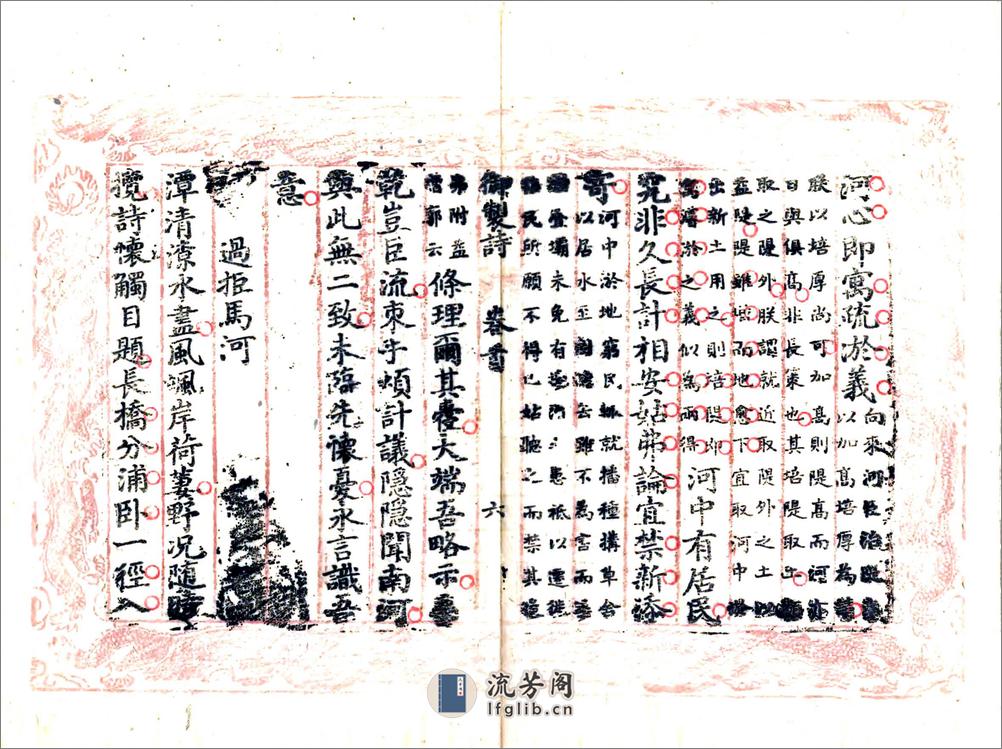 河心即寓疏於義向來河臣治
以加高培厚為
朕以培厚尚可加高則隄高而河
日與俱高非長策也其培隄取土
取之隄外朕謂就近取隄外之土
益隄隄雖增而地愈下宜取河中
出新土用之則培隄即
濬於之義似為兩得河中有居民
究非久長計相安姑弗論宜禁新添
寄河中於地窮民就播種搆草舍
以居水至去雖不為害而
壘壩未免有之患祗以遷徙
民所願不得已姑聽之而禁其
御製詩 卷首 六
弗附益
增廓云條理爾其大端吾略示
乾豈巨流束手煩計議隱隱聞南河
與此無二致未臨先懷憂永言識吾
意
過拒馬河
潭清潦水盡風颯岸荷萎野况隨
攬詩懷觸目題長橋分浦卧一徑入
流芳阁
lfglib.cn